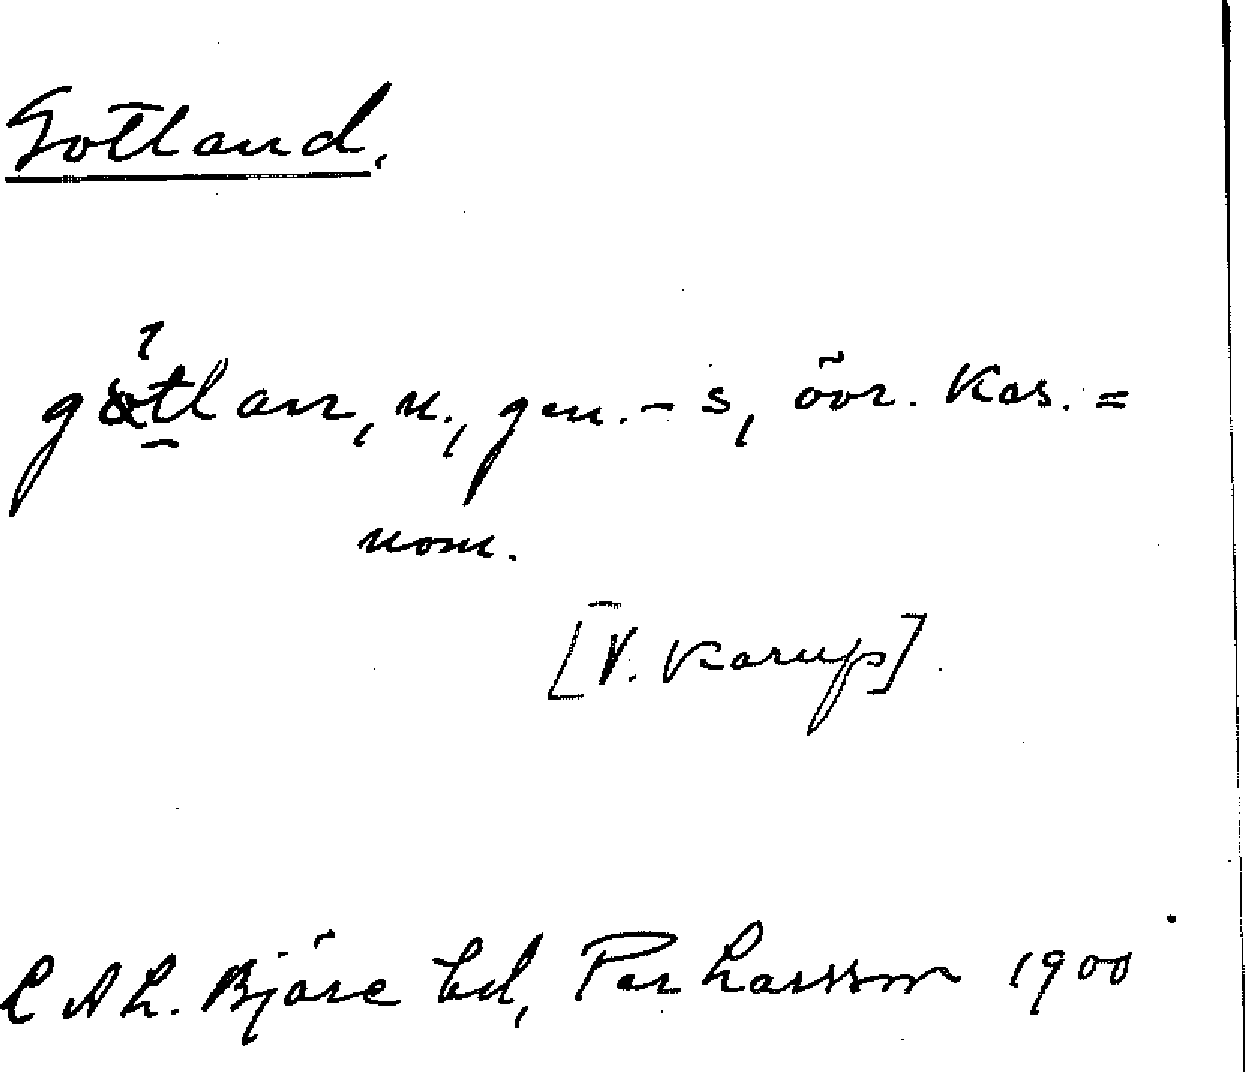 Gotland.
götlan, n., gen. -s, övr. Kas. =
nom.
[V. Karup].
L A L. Bjäre hd, Per Larsson 1900